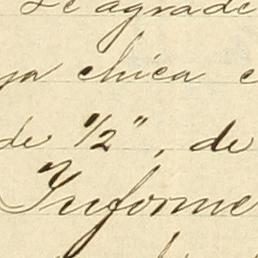 se agrade
ya chica e
de 1/2", de
Informe